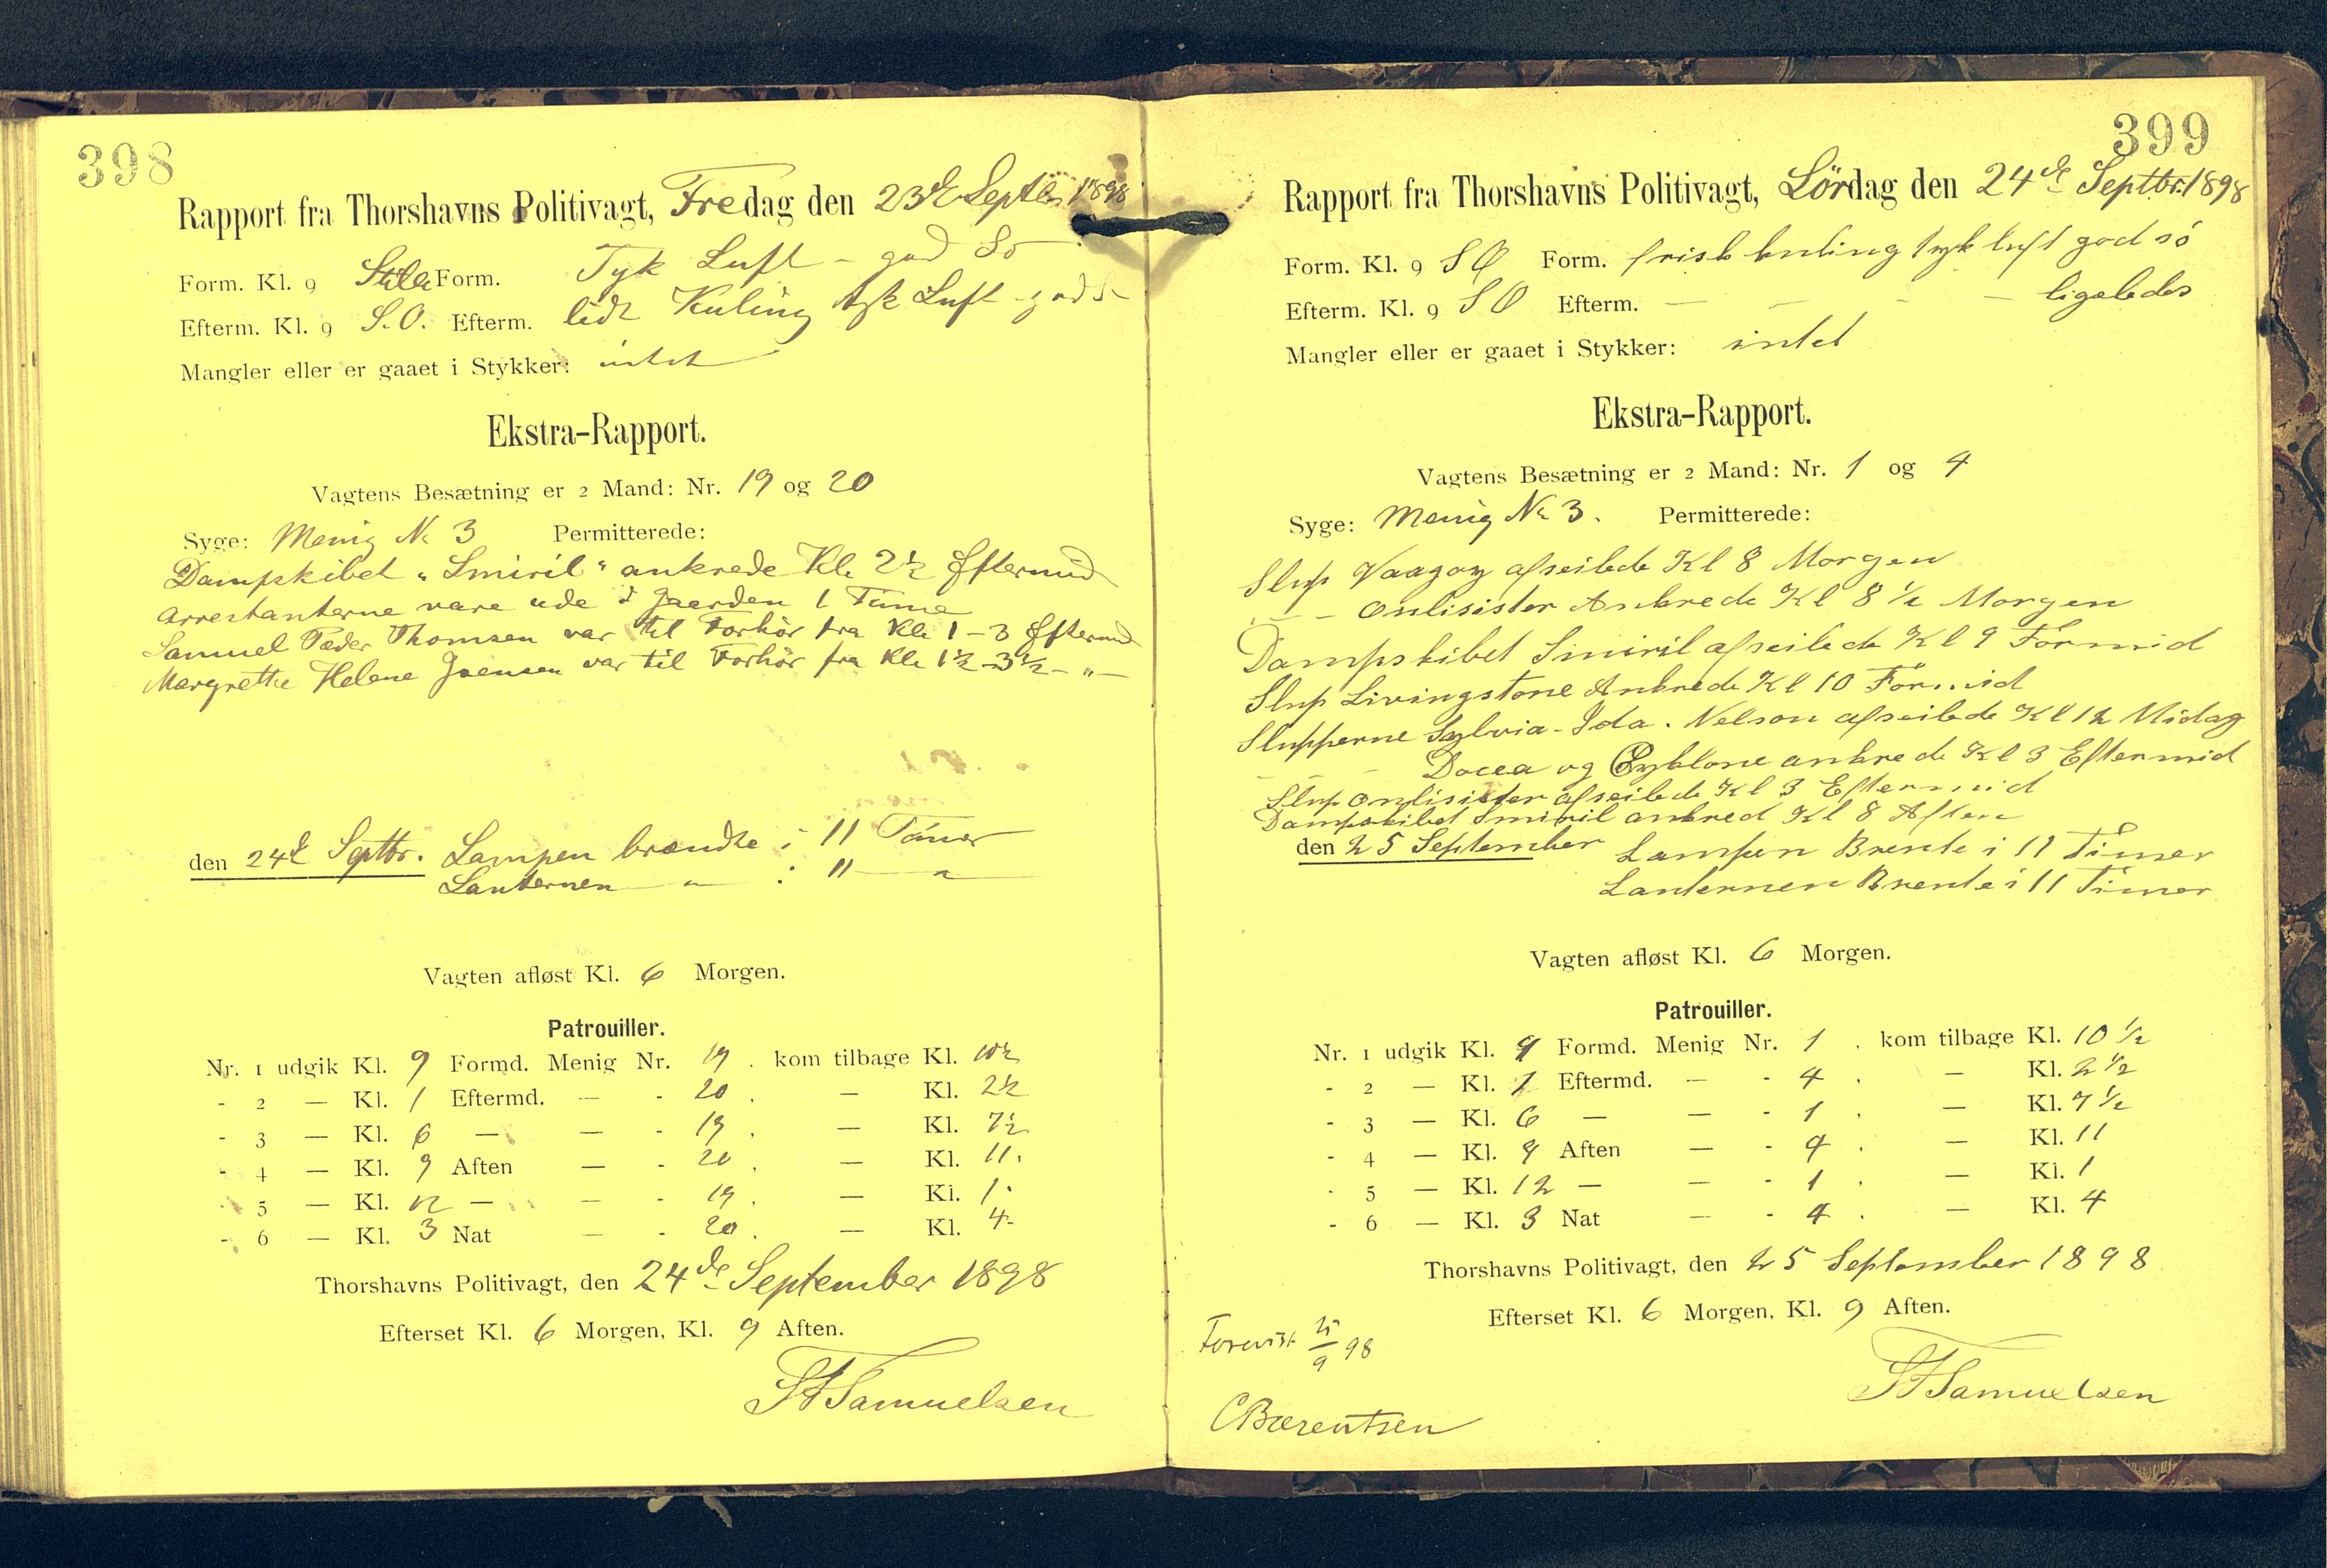 398
Rapport fra Thorshavns Politivagt, Fredag den 23de Septbr 1898
Form. Kl. 9 Stille Form. Tyk Luft - god Sö
Efterm. Kl. 9 S.O. Efterm. lidt Kuling tyk Luft - god S-
Mangler eller er gaaet i Stykker: intet
Ekstra-Rapport.
Vagtens Besætning er 2 Mand: Nr. 19 og 20
Syge: Menig No 3 Permitterede:
Dampskibet "Smiril" ankrede Kl. 2½ Eftermid
Arrestanterne vare ude i Gaarden 1 Time
Samuel Peder Thomsen var til Forhör fra Kl. 1 - 3 Eftermd
Margrethe Helene Joensen var til Forhör fra Kl. 1½ - 3½ - " -
den 24de Septbr. Lampen brændte i 11 Timer
Lanternen - " - : 11 - " -
Vagten afløst Kl. 6 Morgen.
Patrouiller.
Nr. 1 udgik Kl. 9 Formd. Menig Nr. 19 . kom tilbage Kl. 10½
- 2 — Kl. 1 Eftermd. — - 20 . — Kl. 2½
- 3 — Kl. 6 — — - 19 . — Kl. 7½
- 4 — Kl. 9 Aften — - 20 . — Kl. 11.
- 5 — Kl. 12 — — - 19 . — Kl. 1.
- 6 — Kl. 3 Nat — - 20 . — Kl. 4-
Thorshavns Politivagt, den 24de September 1898
Efterset Kl. 6 Morgen, Kl. 9 Aften.
Samuelsen
399
Rapport fra Thorshavns Politivagt, Lördag den 24de Septbr. 1898
Form. Kl. 9 SØ Form. frisk kuling tyk luft god sö
Efterm. Kl. 9 SO Efterm. — — — — ligeledes
Mangler eller er gaaet i Stykker: intet
Ekstra-Rapport.
Vagtens Besætning er 2 Mand: Nr. 1 og 4
Syge: Menig No 3. Permitterede:
Slup Vaagoy afseilede Kl 8 Morgen
- - Onlisister Ankrede Kl 8 ½ Morgen
Dampskibet Smiril afseilede Kl 9 Formid
Slup Livingstone Ankrede Kl 10 Formid
Slupperne Sylvia - Ida . Nelson afseilede Kl 12 Midag
- - - Docea og Cyklone ankrede Kl 3 Eftermid
Slup Onlisister afseilede Kl 3 Eftermid
Dampskibet Smiril ankred Kl 8 Aften
den 25 September Lampen Brente i 11 Timer
Lanternen Brente i 11 Timer
Vagten afløst Kl. 6 Morgen.
Patrouiller.
Nr. 1 udgik Kl. 9 Formd. Menig Nr. 1 . kom tilbage Kl. 10 ½
- 2 — Kl. 1 Eftermd. — - 4 . — Kl. 2 ½
- 3 — Kl. 6 — — - 1 . — Kl. 7 ½
- 4 — Kl. 9 Aften — - 4 . — Kl. 11
- 5 — Kl. 12 — — - 1 . — Kl. 1
- 6 — Kl. 3 Nat — - 4 . — Kl. 4
Thorshavns Politivagt, den 25 September 1898
Efterset Kl. 6 Morgen, Kl. 9 Aften.
Forevist 25/9 98
Samuelsen
CBærentsen